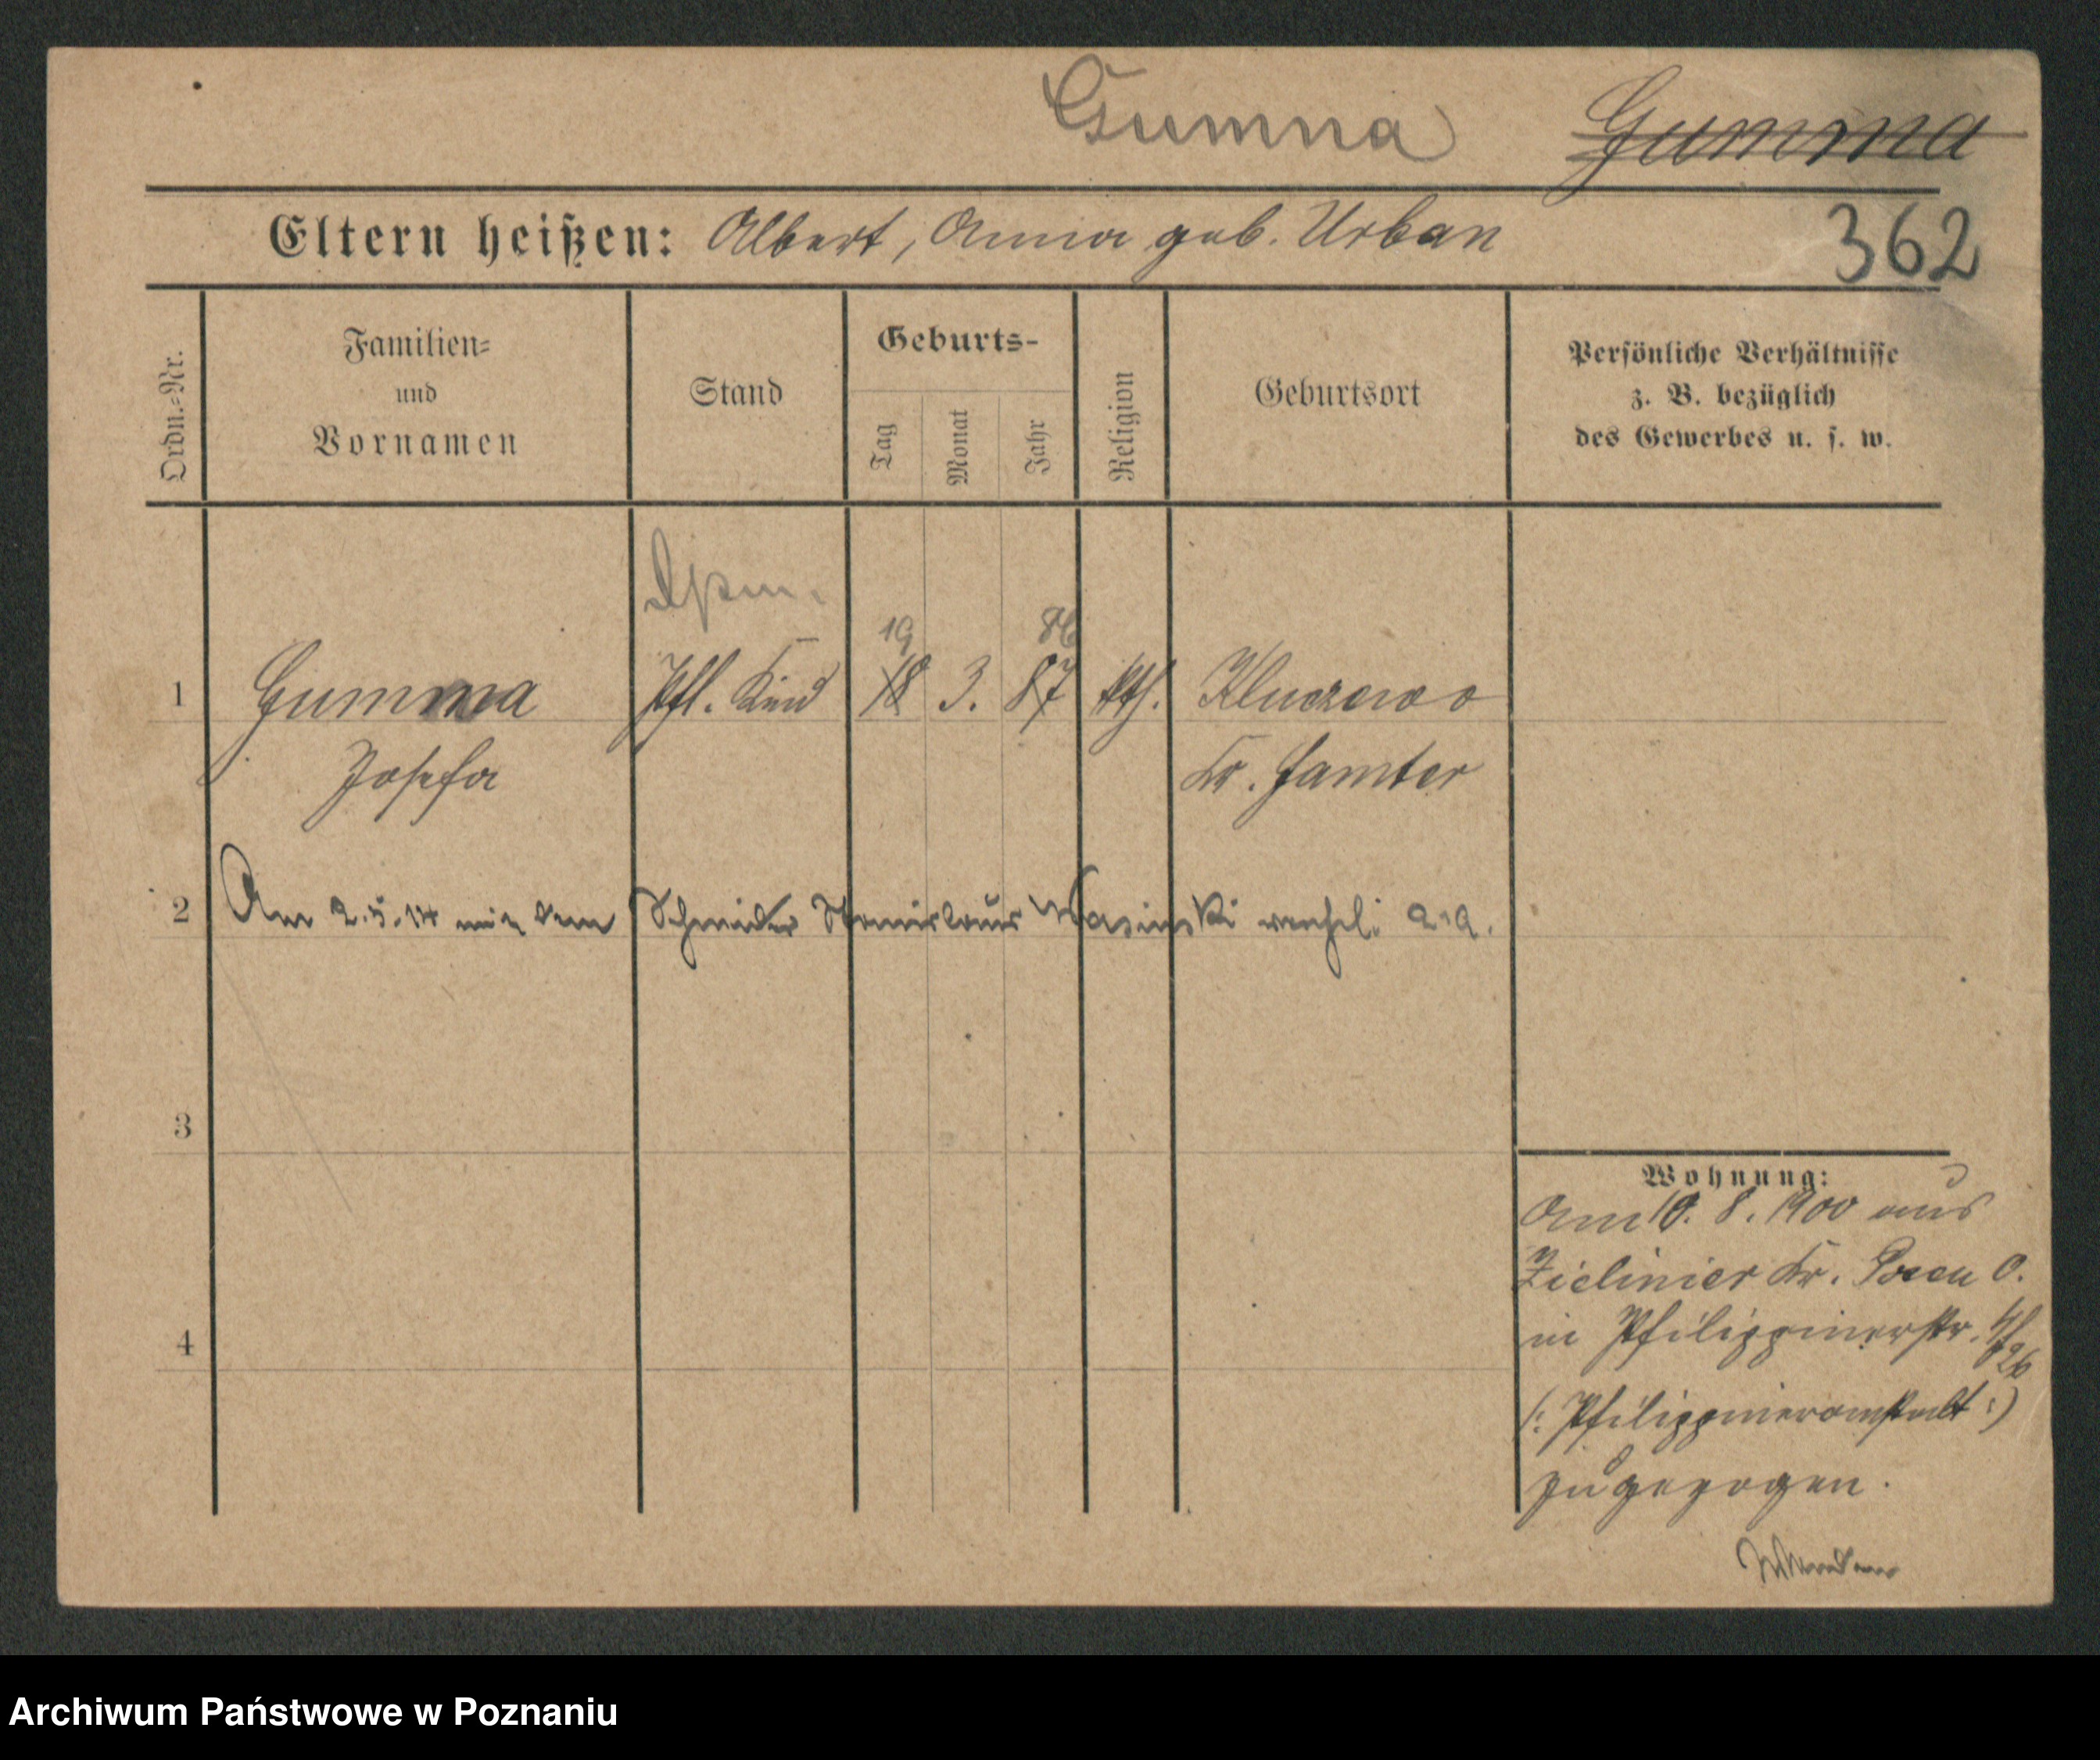 Gumna Gumma
Eltern heißen: Albert, Anna geb. Urban
362
Ordn.-Nr.
Familien-
und
Vornamen
Stand
Geburts-
Tag
Monat
Jahr
Religion
Geburtsort
Persönliche Verhältnisse
z. B. bezüglich
des Gewerbes u. s. w.
19 86
1 Gumna Pfl. Kind 18 3. 87 kth. Kluczewo
Josefa Kr. Samter
2 Am 2.5.14 mit dem Schneider Stanislaus Wasinski verehel.
3
4
Wohnung:
Am 10. 8. 1900 aus
Zieliniec Kr. Posen O.
in Philippinerstr. 4/
(: Philippineranstalt :)
zugezogen.
Archiwum Państwowe w Poznaniu